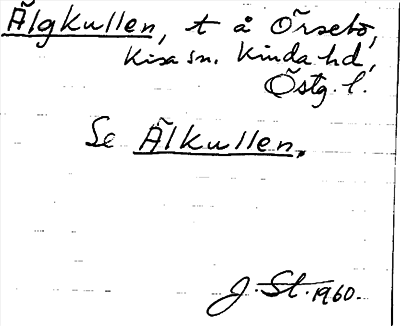 Älgkullen, t å Örsebo,
Kisa sn. Kinda hd,
Östg. l.
Se Älkullen.
J. St. 1960.